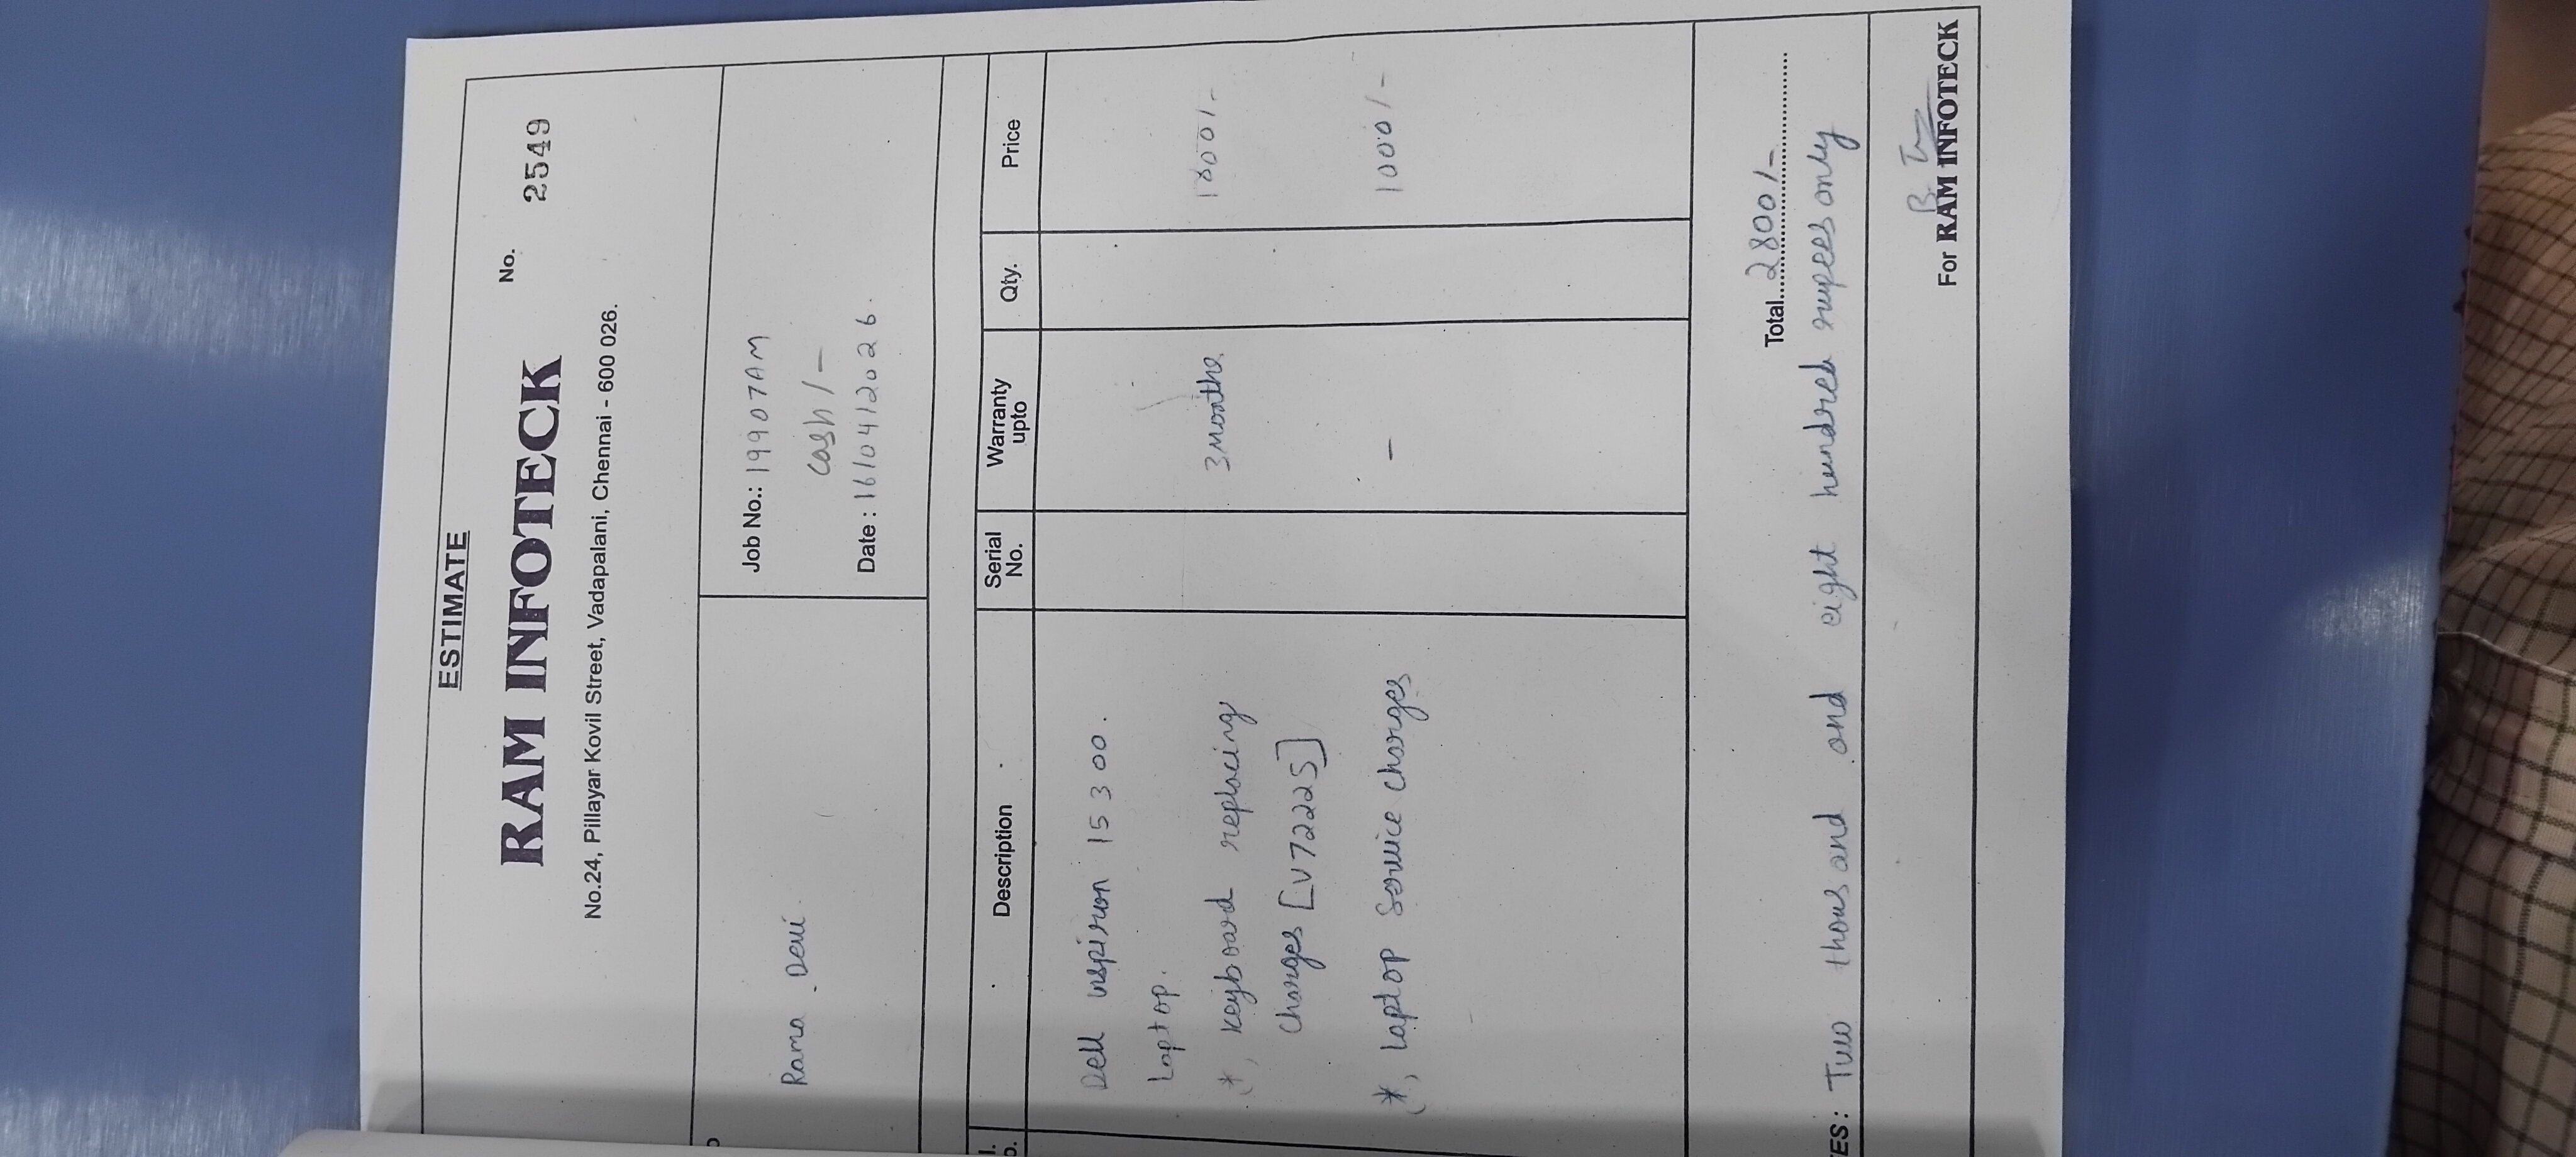 ESTIMATE
RAM INFOTECK
No. 2549
No.24, Pillayar Kovil Street, Vadapalani, Chennai - 600 026.
Rama Devi.
Job No.: 19907AM
cash/-
Date : 16/04/2026.
Description Serial No. Warranty upto Qty. Price
Dell inspiron 15 300.
Laptop.
(*, keyboard replacing 3 Months 1800/-
charges [V7222S]
(*, Laptop service charges – 1000/-
Total 2800/-
ES: Two thousand and eight hundred rupees only
For RAM INFOTECK